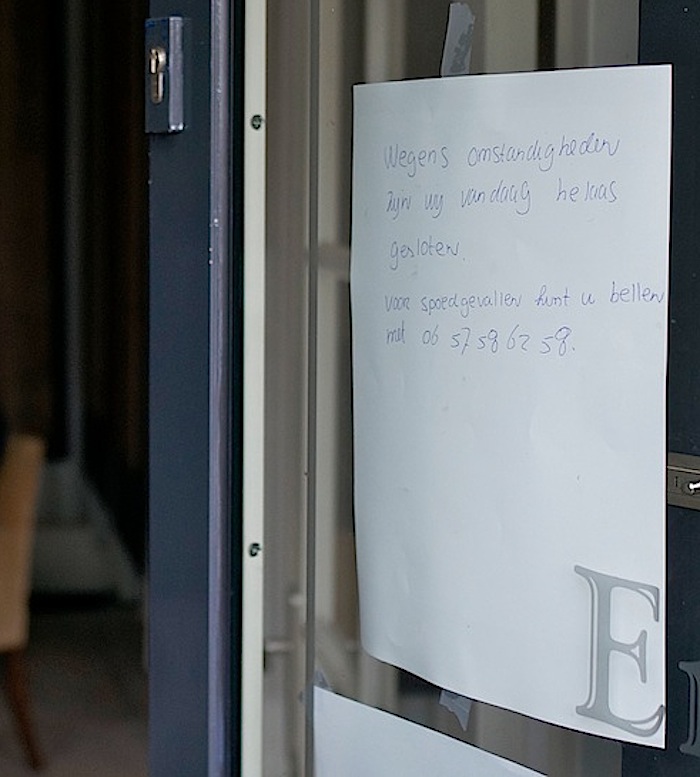 Wegens omstandigheden
zijn wij vandaag helaas
gesloten.
voor spoedgevallen kunt u bellen
met 06 57 58 62 58.
E